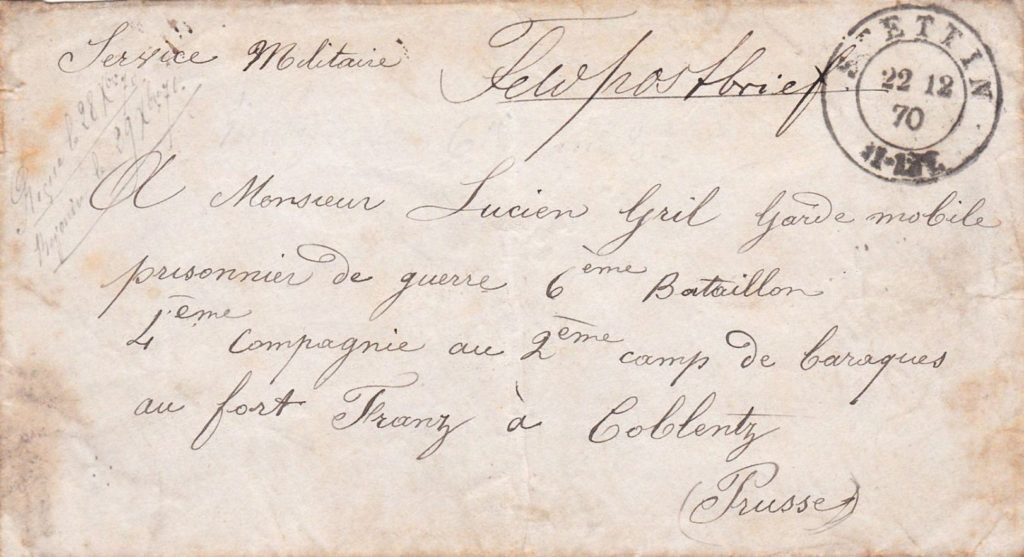 Service Militaire
Feldpostbrief.
STETTIN
22 12
70
le 28 Xbre
le 29 Xbre 71.
A Monsieur Lucien Gril Garde mobile
prisonnier de guerre 6ème Bataillon
4ème Compagnie au 2ème camp de baraques
au fort Franz à Coblentz
(Prusse)